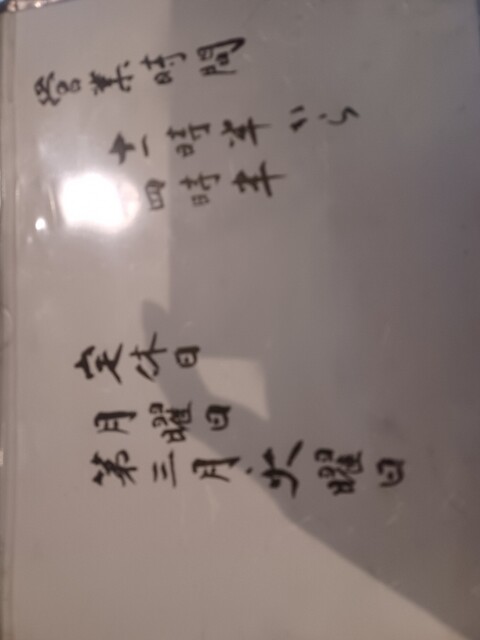 営業時間
十一時半から
四時半
定休日
月曜日
第三月火曜日